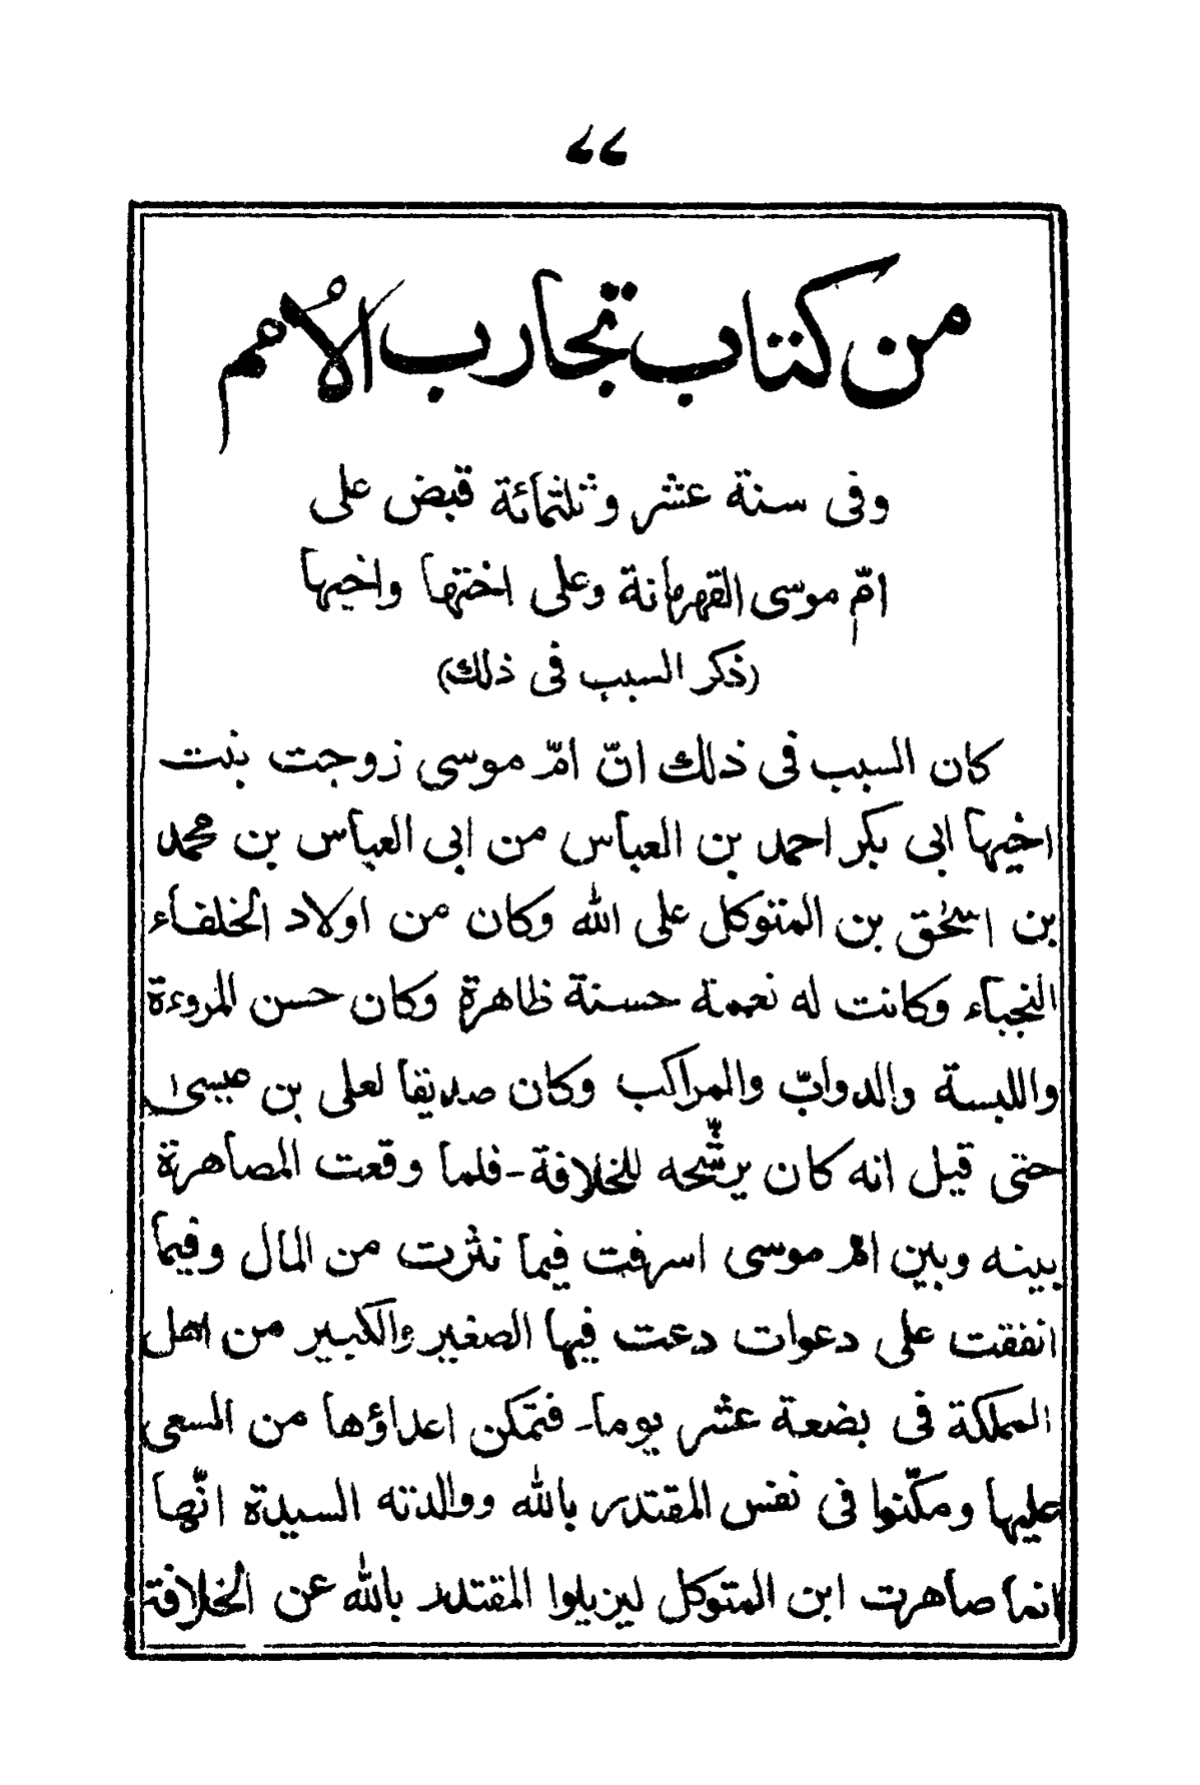 ٧٧
من كتاب تجارب الأمم
وفى سنة عشر وثلثمائة قبض على
امّ موسى القهرمانة وعلى اختها واخيها
(ذكر السبب فى ذلك)
كان السبب فى ذلك انّ امّ موسى زوجت بنت
اخيها ابى بكر احمد بن العباس من ابى العباس بن محمد
بن اسحٰق بن المتوكل على الله وكان من اولاد الخلفاء
النجباء وكانت له نعمة حسنة ظاهرة وكان حسن المروءة
واللبسة والدوابّ والمراكب وكان صديقا لعلى بن عيسى
حتى قيل انه كان يرشّحه للخلافة - فلما وقعت المصاهرة
بينه وبين ام موسى اسرفت فيما نثرت من المال وفيما
انفقت على دعوات دعت فيها الصغير والكبير من اهل
المملكة فى بضعة عشر يوما - فتمكن اعداؤها من السعى
عليها ومكّنوا فى نفس المقتدر بالله ووالدته السيدة انّها
انما صاهرت ابن المتوكل ليزيلوا المقتدر بالله عن الخلافة